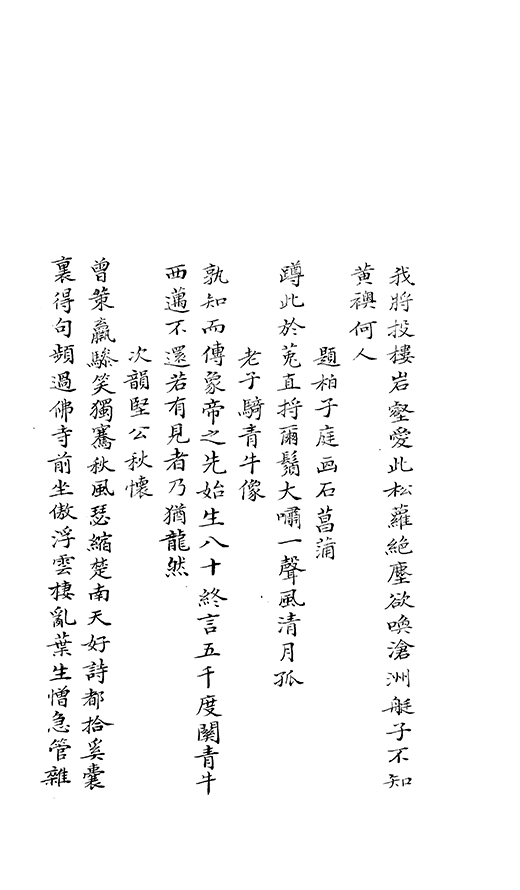 我將投樓岩壑愛此松蘿絕塵欲喚滄洲艇子不知
黄襖何人
題柏子庭画石菖蒲
蹲此於菟直捋爾鬚大嘯一聲風清月孤
老子騎青牛像
孰知而傳象帝之先始生八十終言五千度関青牛
西邁不還若有見者乃猶龍然
次韻堅公秋懷
曾策羸驂笑獨騫秋風瑟縮楚南天好詩都拾奚囊
裏得句頻過佛寺前坐傲浮雲棲亂葉生憎急管雜